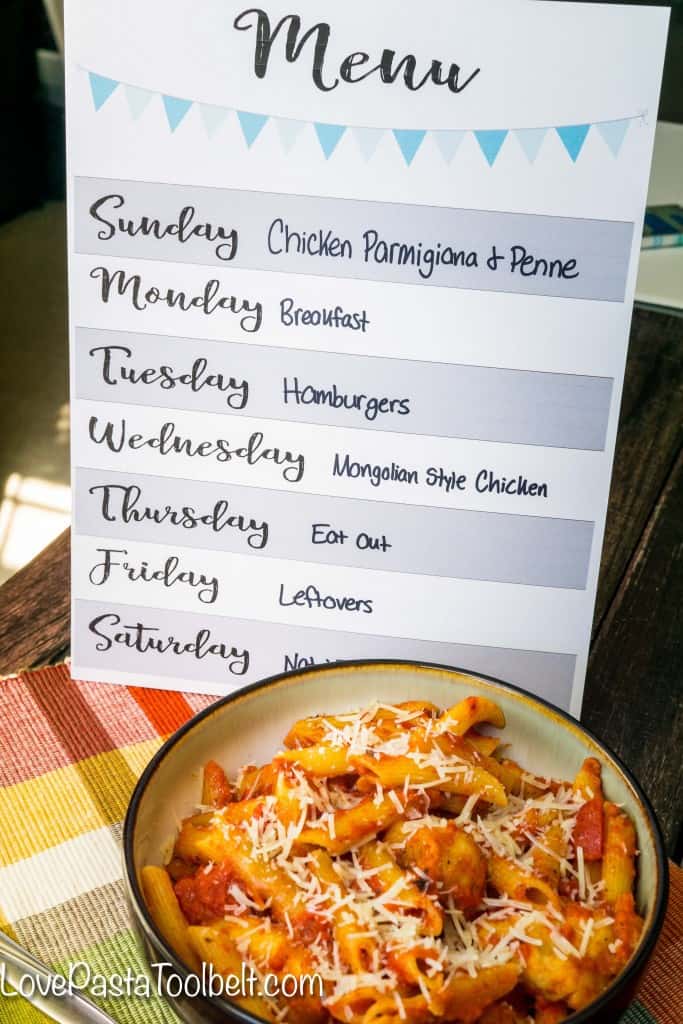 Menu
Sunday Chicken Parmigiana & Penne
Monday Breakfast
Tuesday Hamburgers
Wednesday Mongolian Style Chicken
Thursday Eat Out
Friday Leftovers
Saturday
LovePastaToolbelt.com